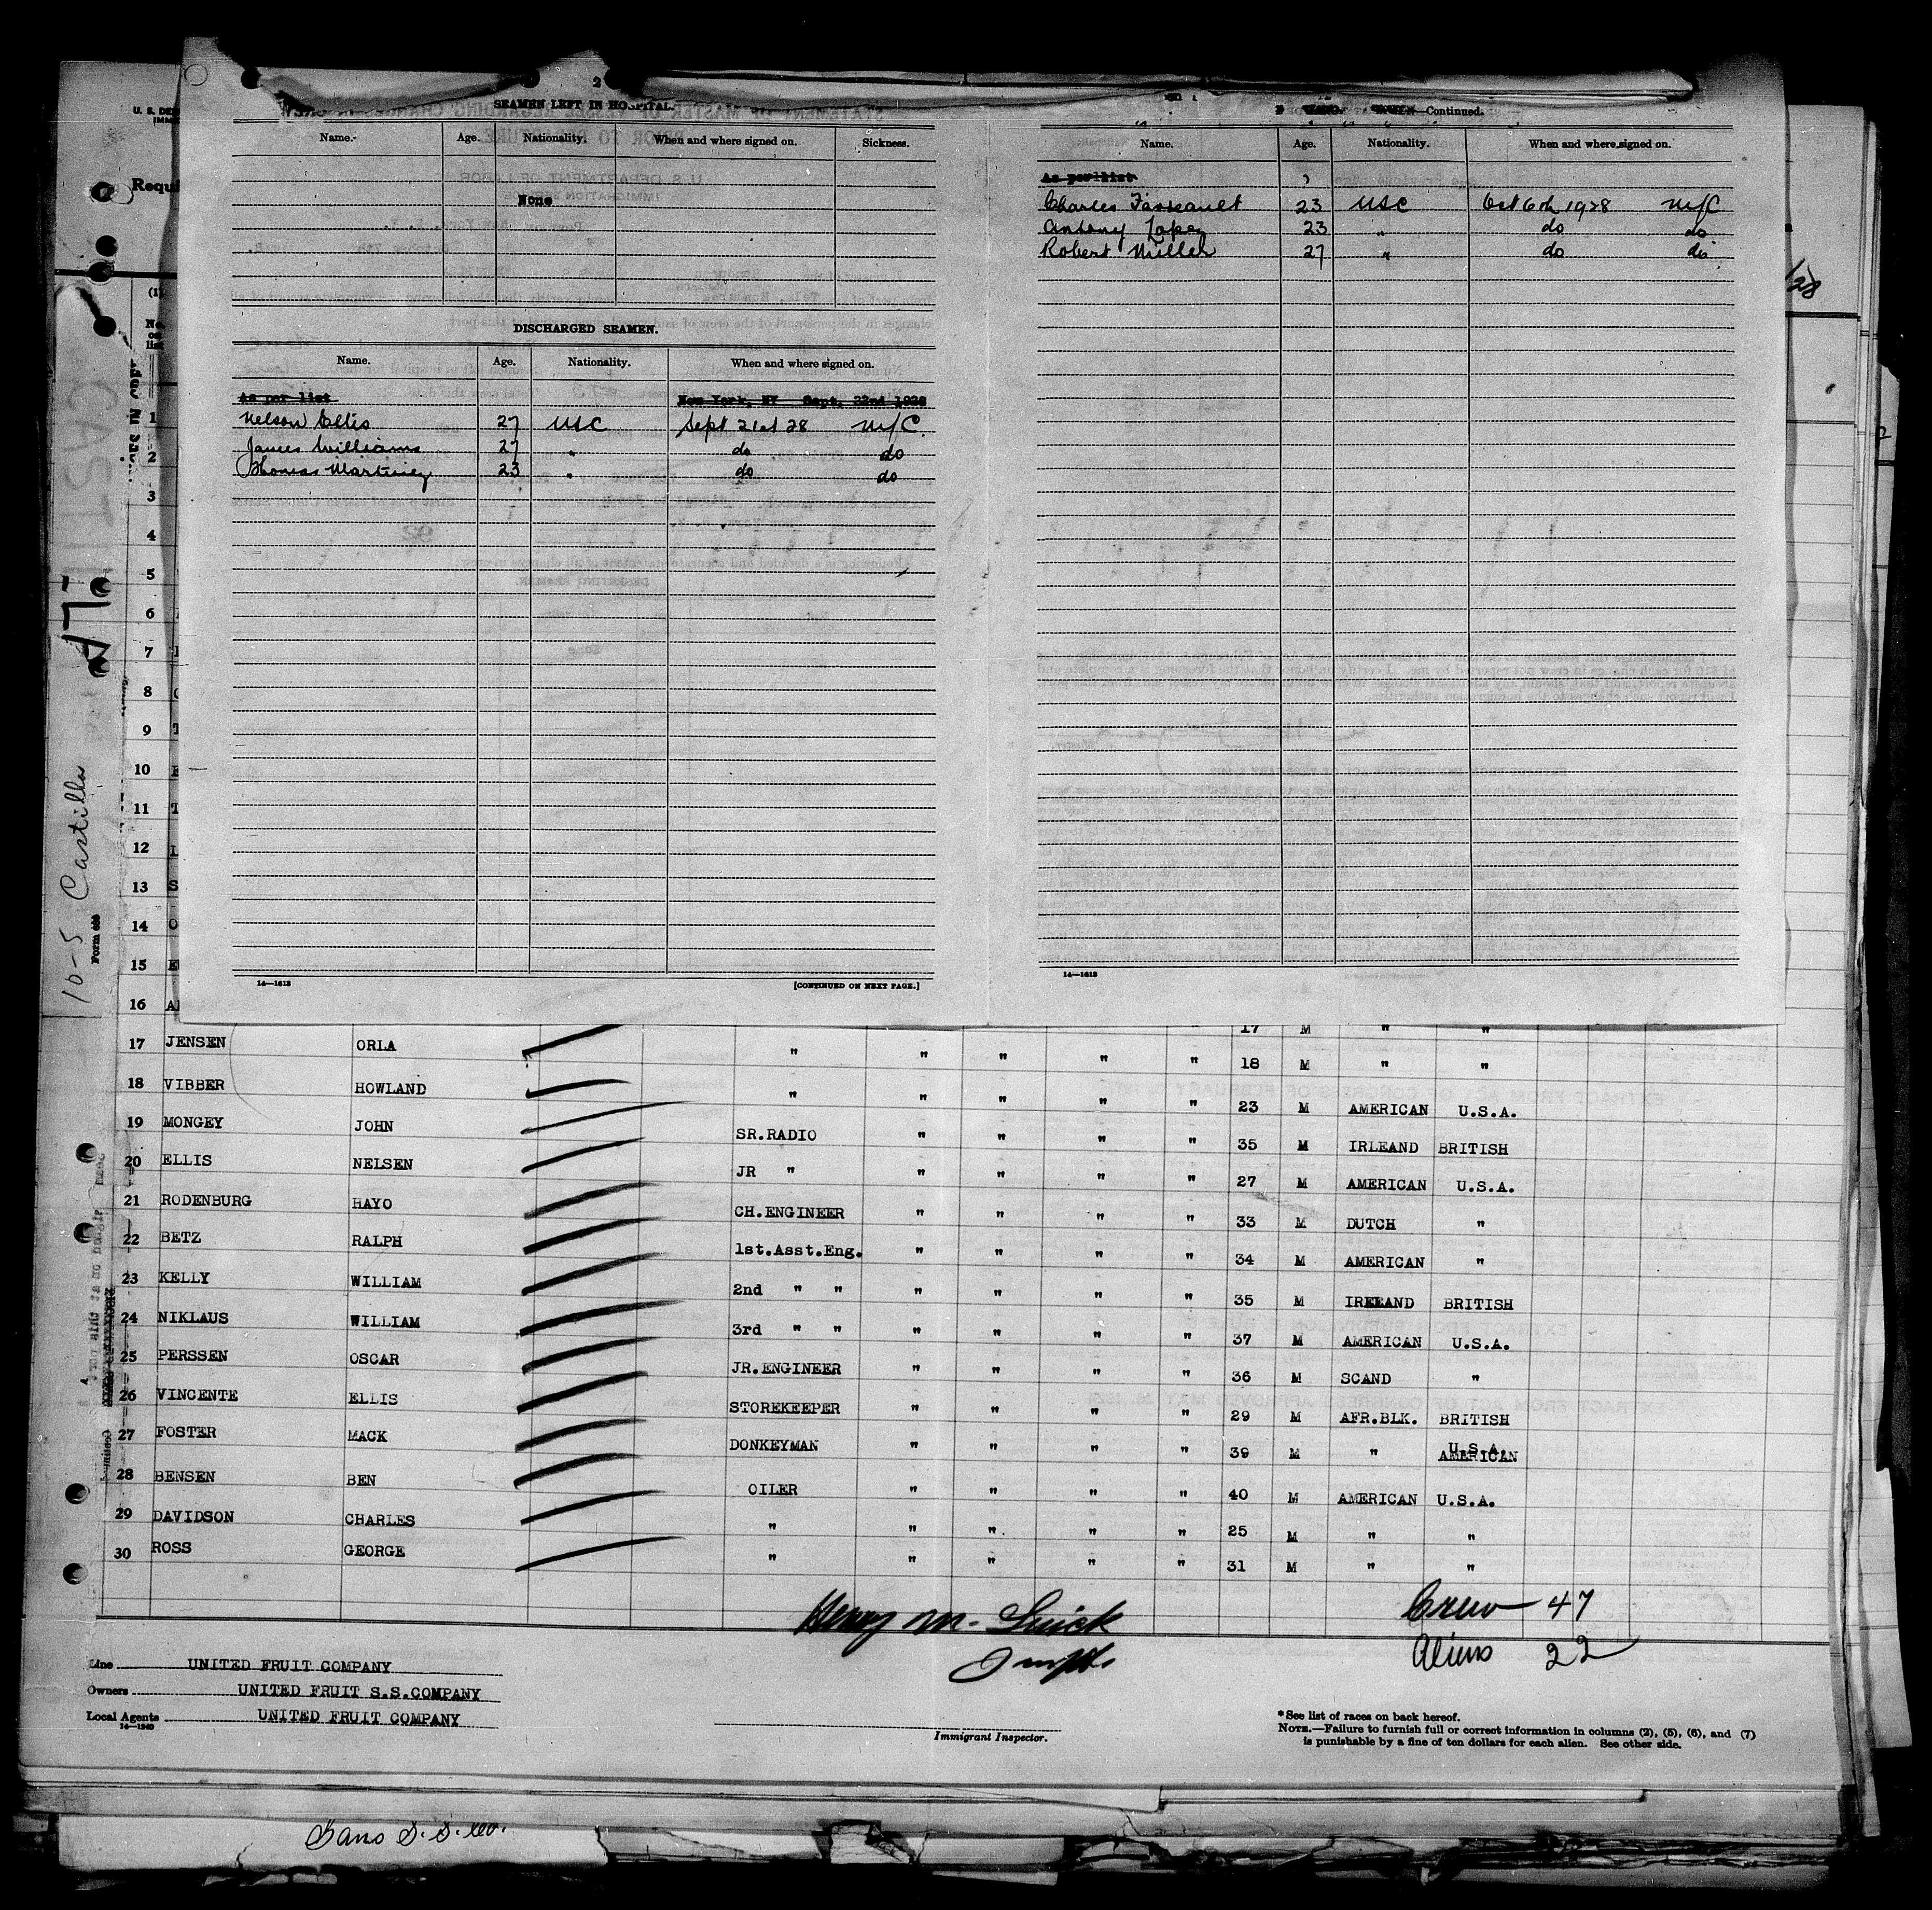 2
SEAMEN LEFT IN HOSPITAL.
Name. Age. Nationality. When and where signed on. Sickness.
None
DISCHARGED SEAMEN.
Name. Age. Nationality. When and where signed on.
As per list New York, NY Sept. 22nd 1928
Nelson Ellis 27 USC Sept 21st 28 N/C.
James Williams 27 " do do
Thomas Martinez 23 " do do
14—1613 [CONTINUED ON NEXT PAGE.]
—Continued.
Name. Age. Nationality. When and where signed on.
As per list
Charles 23 USC Oct 6th 1928 N/C
Antony Lopez 23 " do do
Robert Miller 27 " do do
14—1613
U. S. DE
Requi
(1)
No.
on
list
1
2
3
4
5
6
7
8
9 T
10 E
11 T
12 L
13 S
14 O
15 E
16 A
17 M " "
17 JENSEN ORLA " " " " " 18 M " "
18 VIBBER HOWLAND " " " " " 23 M AMERICAN U.S.A.
19 MONGEY JOHN SR.RADIO " " " " 35 M IRLEAND BRITISH
20 ELLIS NELSEN JR " " " " " 27 M AMERICAN U.S.A.
21 RODENBURG HAYO CH.ENGINEER " " " " 33 M DUTCH "
22 BETZ RALPH 1st.Asst.Eng. " " " " 34 M AMERICAN "
23 KELLY WILLIAM 2nd " " " " " " 35 M IREEAND BRITISH
24 NIKLAUS WILLIAM 3rd " " " " " " 37 M AMERICAN U.S.A.
25 PERSSEN OSCAR JR.ENGINEER " " " " 36 M SCAND "
26 VINCENTE ELLIS STOREKEEPER " " " " 29 M AFR.BLK. BRITISH
27 FOSTER MACK DONKEYMAN " " " " 39 M " U.S.A. AMERICAN
28 BENSEN BEN OILER " " " " 40 M AMERICAN U.S.A.
29 DAVIDSON CHARLES " " " " " 25 M " "
30 ROSS GEORGE " " " " " 31 M " "
Crew — 47
Aliens 22
Henry M.
Line UNITED FRUIT COMPANY
Owners UNITED FRUIT S.S.COMPANY
Local Agents UNITED FRUIT COMPANY
14—1240
Immigrant Inspector.
*See list of races on back hereof.
NOTE.—Failure to furnish full or correct information in columns (2), (5), (6), and (7)
is punishable by a fine of ten dollars for each alien. See other side.
10-5 Castilla
S. S. Co.